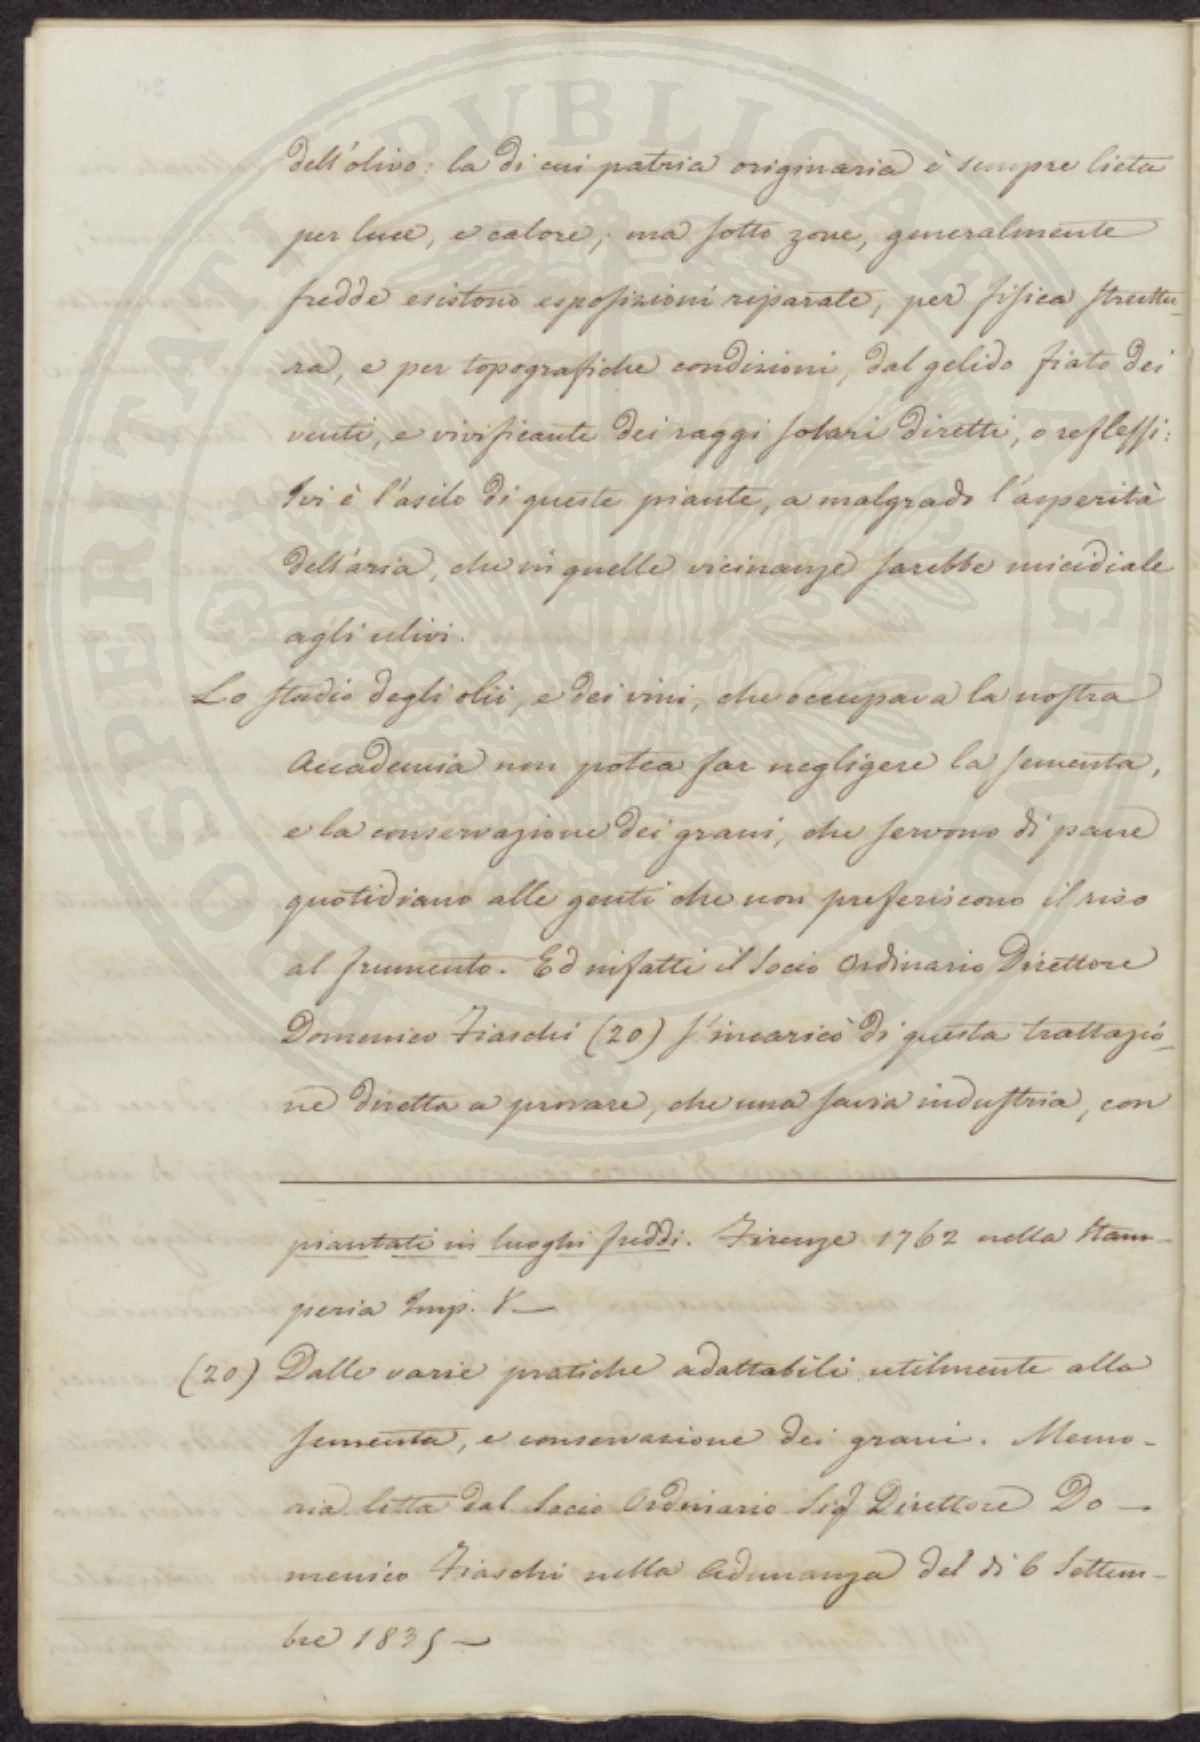 dell'olivo: la di cui patria originaria è sempre lieta
per luce, e calore; ma sotto zone, generalmente
fredde esistono esposizioni riparate, per fisica struttu-
ra, e per topografiche condizioni, dal gelido fiato dei
venti, e vivificante dei raggi solari diretti, o reflessi:
Ivi è l'asilo di queste piante, a malgrado l'asperità
dell'aria, che in quelle vicinanze sarebbe micidiale
agli ulivi.
Lo studio degli olii, e dei vini, che occupava la nostra
Accademia non potea far negligere la sementa,
e la conservazione dei grani, che servono di pane
quotidiano alle genti che non preferiscono il riso
al frumento. Ed infatti il Socio Ordinario Direttore
Domenico Fiaschi (20) s'incaricò di questa trattazio-
ne diretta a provare, che una savia industria, con
piantati in luoghi freddi. Firenze 1762 nella Stam-
peria Imp.
(20) Dalle varie pratiche adattabili utilmente alla
sementa, e conservazione dei grani. Memo-
ria letta dal Socio Ordinario Sig Direttore Do-
menico Fiaschi nella Adunanza del dì 6 Settem-
bre 1835
HOSPERITATI PUBLICAE AUGENDAE